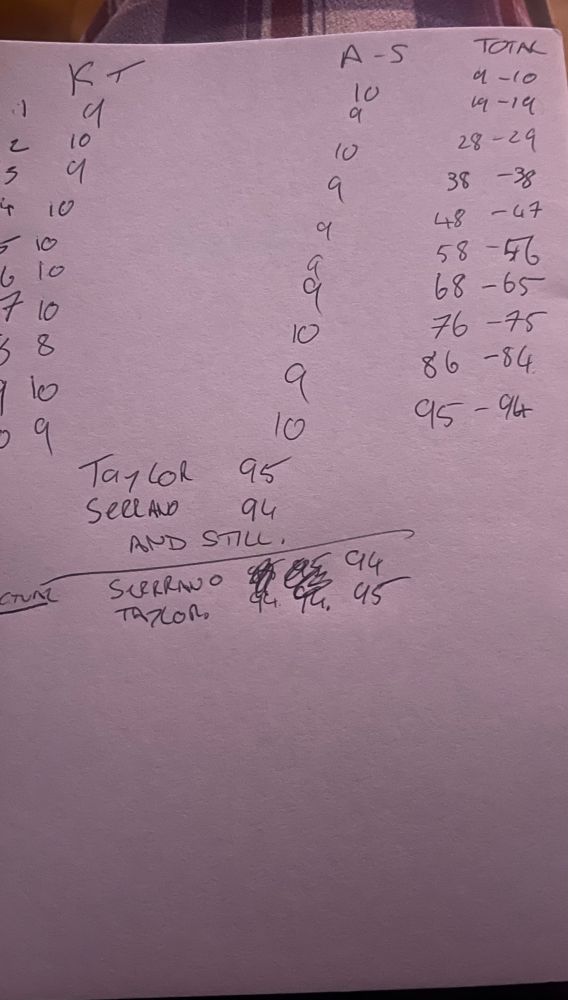 KT A-S TOTAL
1 9 10 9-10
2 10 9 19-19
3 9 10 28-29
4 10 9 38-38
5 10 9 48-47
6 10 9 58-56
7 10 9 68-65
8 8 10 76-75
9 10 9 86-84
0 9 10 95-94
TAYLOR 95
SERRANO 94
AND STILL.
CTUAL SERRANO 94
TAYLOR. 94. 94. 95